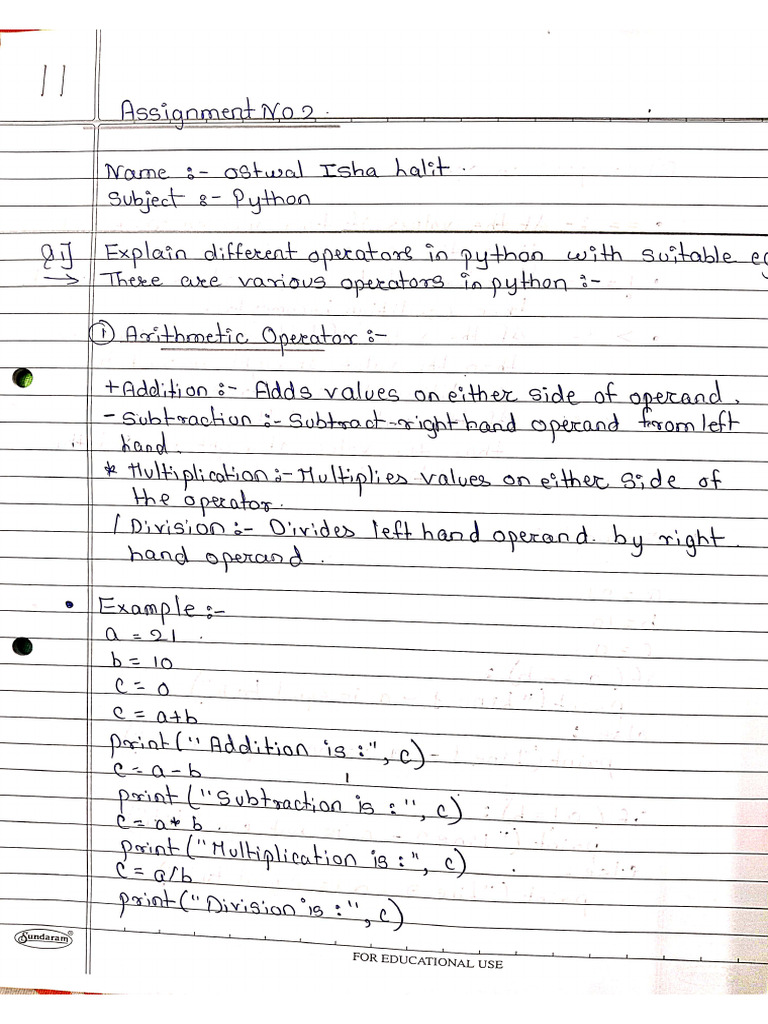 11
Assignment No 2.
Name :- Ostwal Isha Lalit.
Subject :- Python
Q.1] Explain different operators in python with suitable eg
→ There are various operators in python :-
① Arithmetic Operator :-
+ Addition :- Adds values on either side of operand.
- Subtraction :- Subtract-right hand operand from left
hand.
* Multiplication :- Multiplies values on either side of
the operator.
/ Division :- Divides left hand operand. by right
hand operand.
• Example :-
a = 21.
b = 10
c = 0
c = a+b
print("Addition is :", c)
c = a-b
print ("Subtraction is :", c)
c = a* b.
print ("Multiplication is :", c)
c = a/b
print ("Division is :", c)
Sundaram®
FOR EDUCATIONAL USE